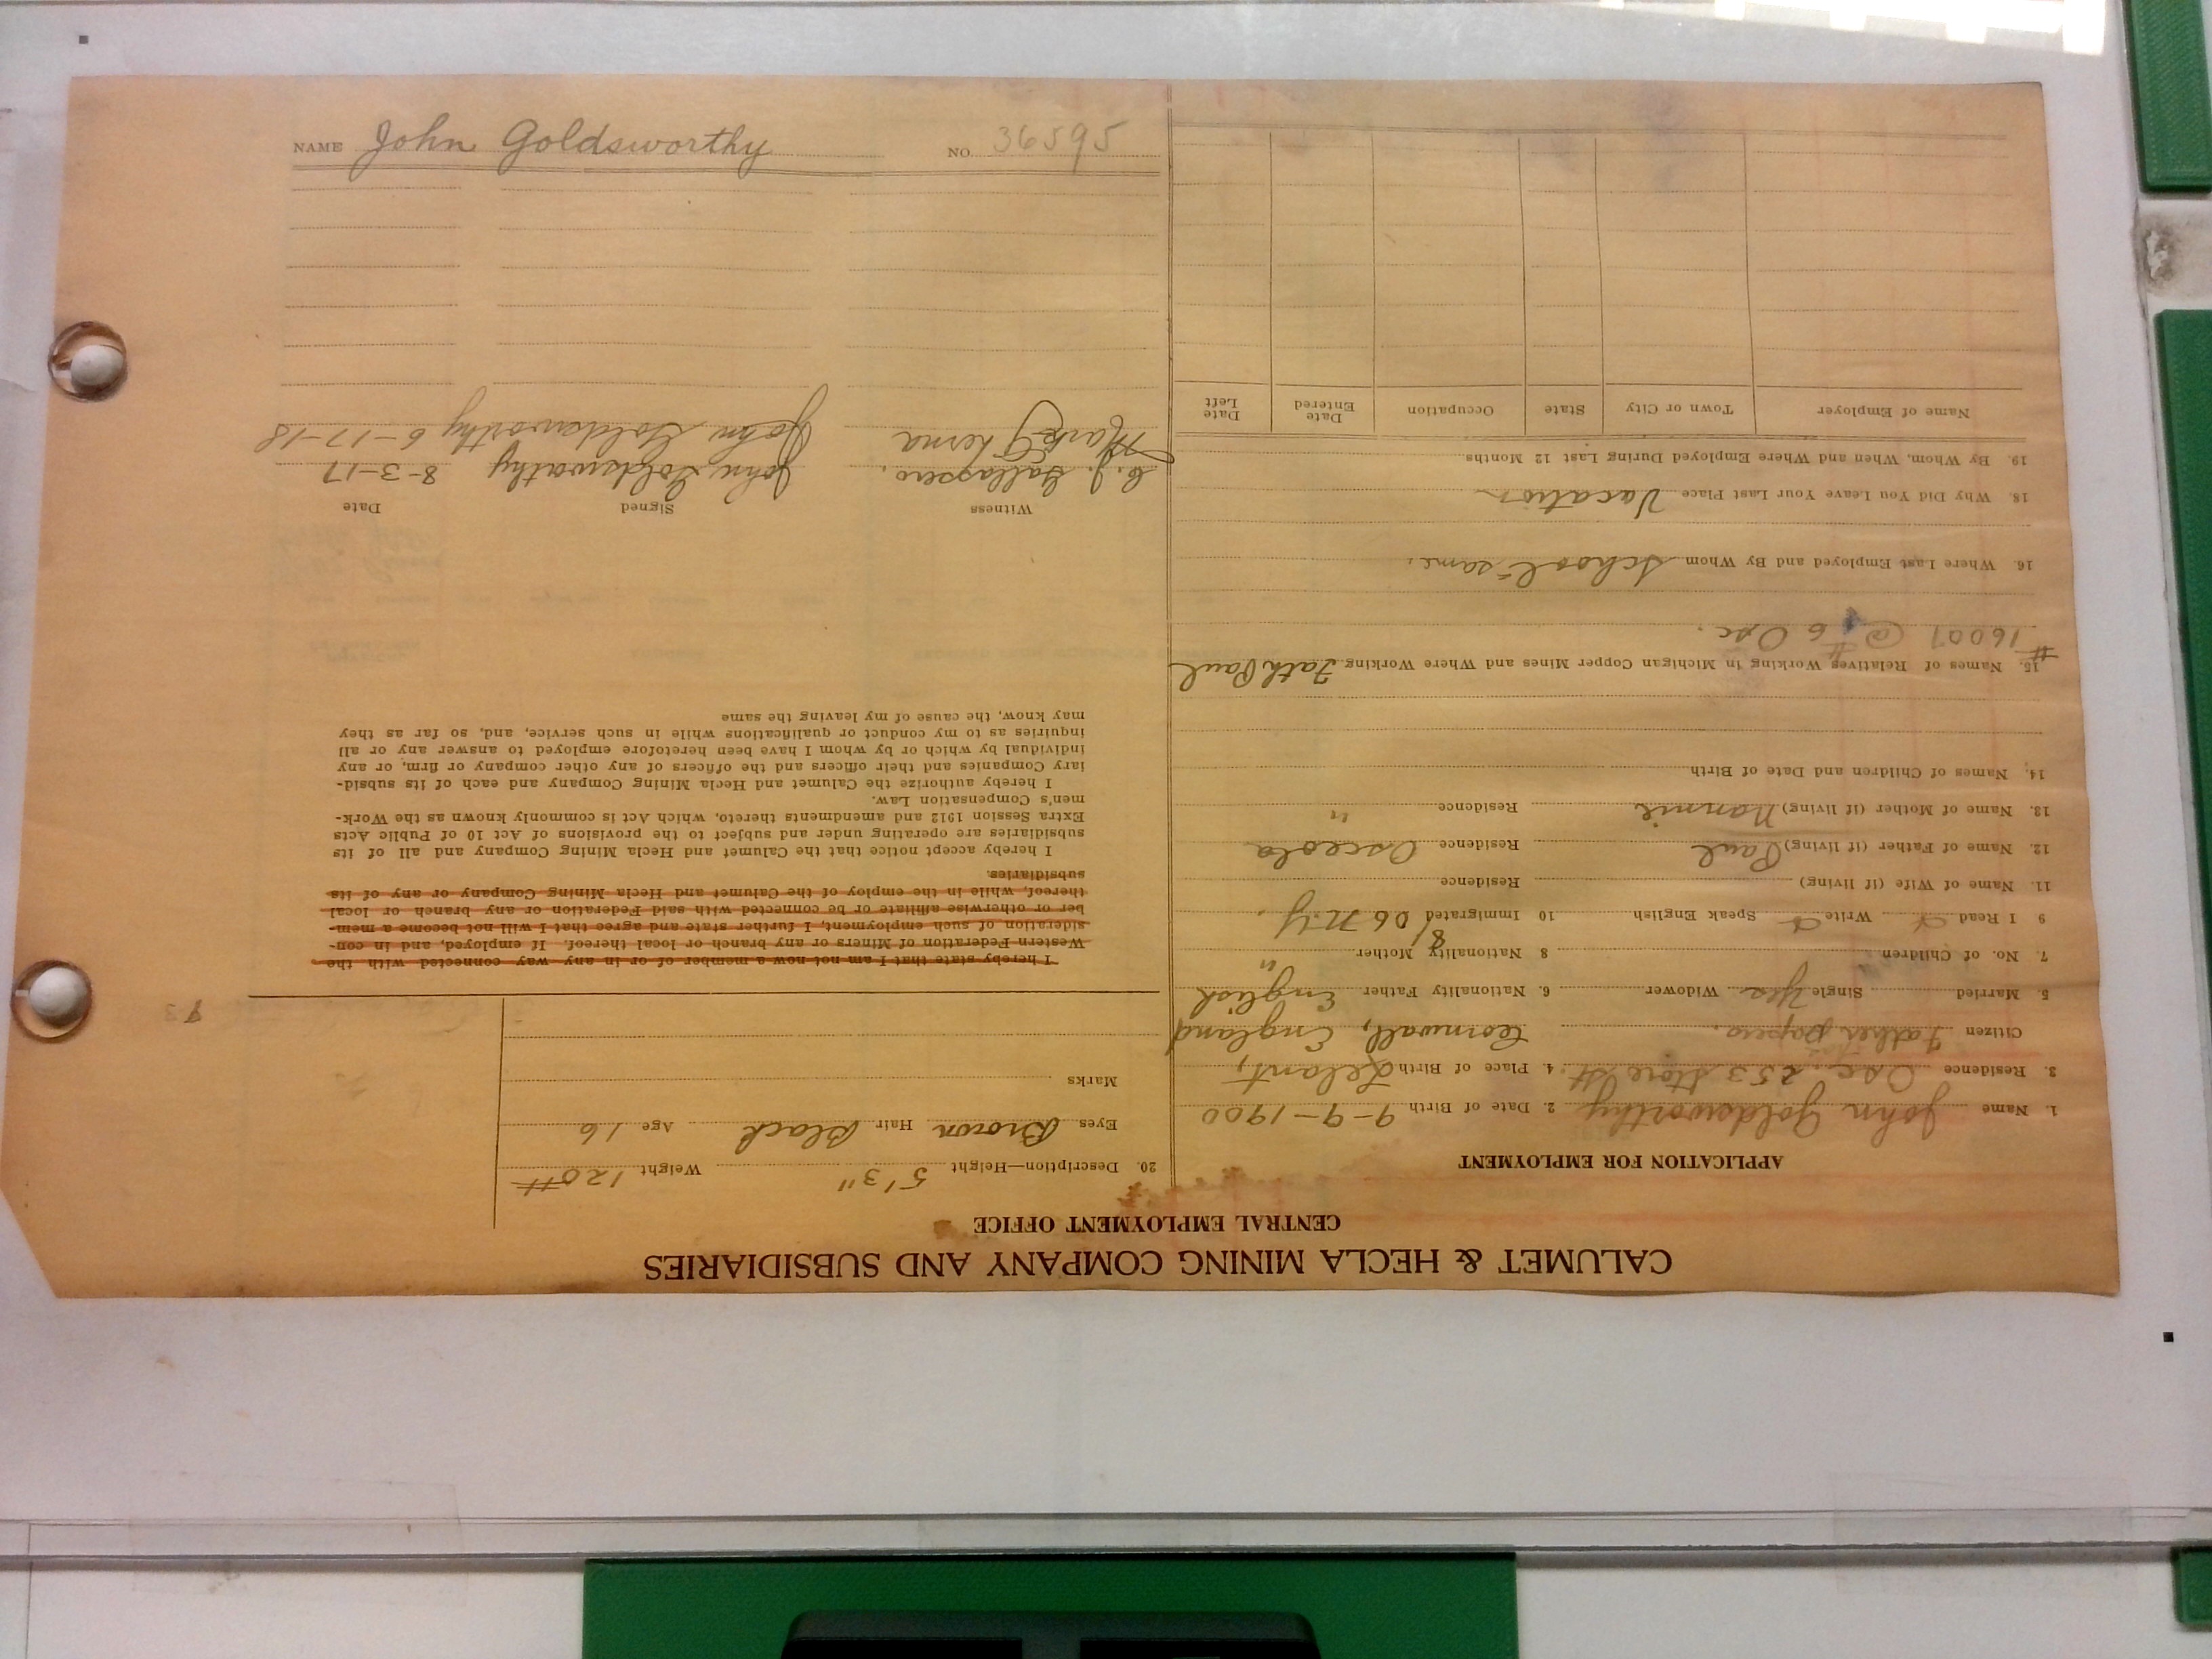 CALUMET & HECLA MINING COMPANY AND SUBSIDIARIES
CENTRAL EMPLOYMENT OFFICE
APPLICATION FOR EMPLOYMENT
1. Name John Goldsworthy 2. Date of Birth 9-9-1900
3. Residence Osc. 253 Store St. 4. Place of Birth Lelant,
Citizen Father papers. Cornwall, England
5. Married Single Yes Widower 6. Nationality Father English
7. No. of Children 8 Nationality Mother "
9 I Read Write Speak English 10 Immigrated 8/06 N.Y.
11. Name of Wife (if living) Residence
12. Name of Father (if living) Paul Residence Osceola
13. Name of Mother (if living) Nannie Residence "
14. Names of Children and Date of Birth
15. Names of Relatives Working in Michigan Copper Mines and Where Working Fath Paul
# 16007 @ # 6 Osc.
16. Where Last Employed and By Whom School same.
18. Why Did You Leave Your Last Place Vacation
19. By Whom, When and Where Employed During Last 12 Months
Name of Employer Town or City State Occupation Date Entered Date Left
20. Description—Height 5' 3" Weight 120#
Eyes Brown Hair Black Age 16
Marks
I hereby state that I am not now a member of or in any way connected with the
Western Federation of Miners or any branch or local thereof. If employed, and in con-
sideration of such employment, I further state and agree that I will not become a mem-
ber or otherwise affiliate or be connected with said Federation or any branch or local
thereof, while in the employ of the Calumet and Hecla Mining Company or any of its
subsidiaries.
I hereby accept notice that the Calumet and Hecla Mining Company and all of its
subsidiaries are operating under and subject to the provisions of Act 10 of Public Acts
Extra Session 1912 and amendments thereto, which Act is commonly known as the Work-
men's Compensation Law.
I hereby authorize the Calumet and Hecla Mining Company and each of its subsid-
iary Companies and their officers and the officers of any other company or firm, or any
individual by which or by whom I have been heretofore employed to answer any or all
inquiries as to my conduct or qualifications while in such service, and, so far as they
may know, the cause of my leaving the same
Witness Signed Date
C. J. Gallasero. John Goldsworthy 8-3-17
Mark John Goldsworthy 6-17-18
NAME John Goldsworthy NO. 36595